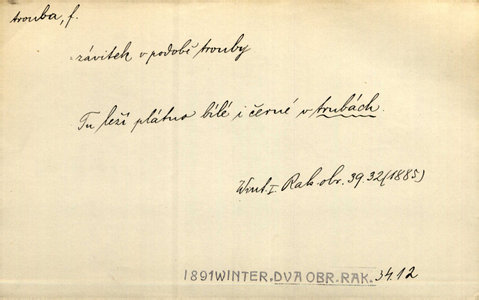 trouba, f.
závitek v podobě trouby
Tu leží plátno bílé i černé v trubách.
Wint. I. Rak. obr. 39.32 (1885)
1891 WINTER. DVA OBR. RAK. 34.12